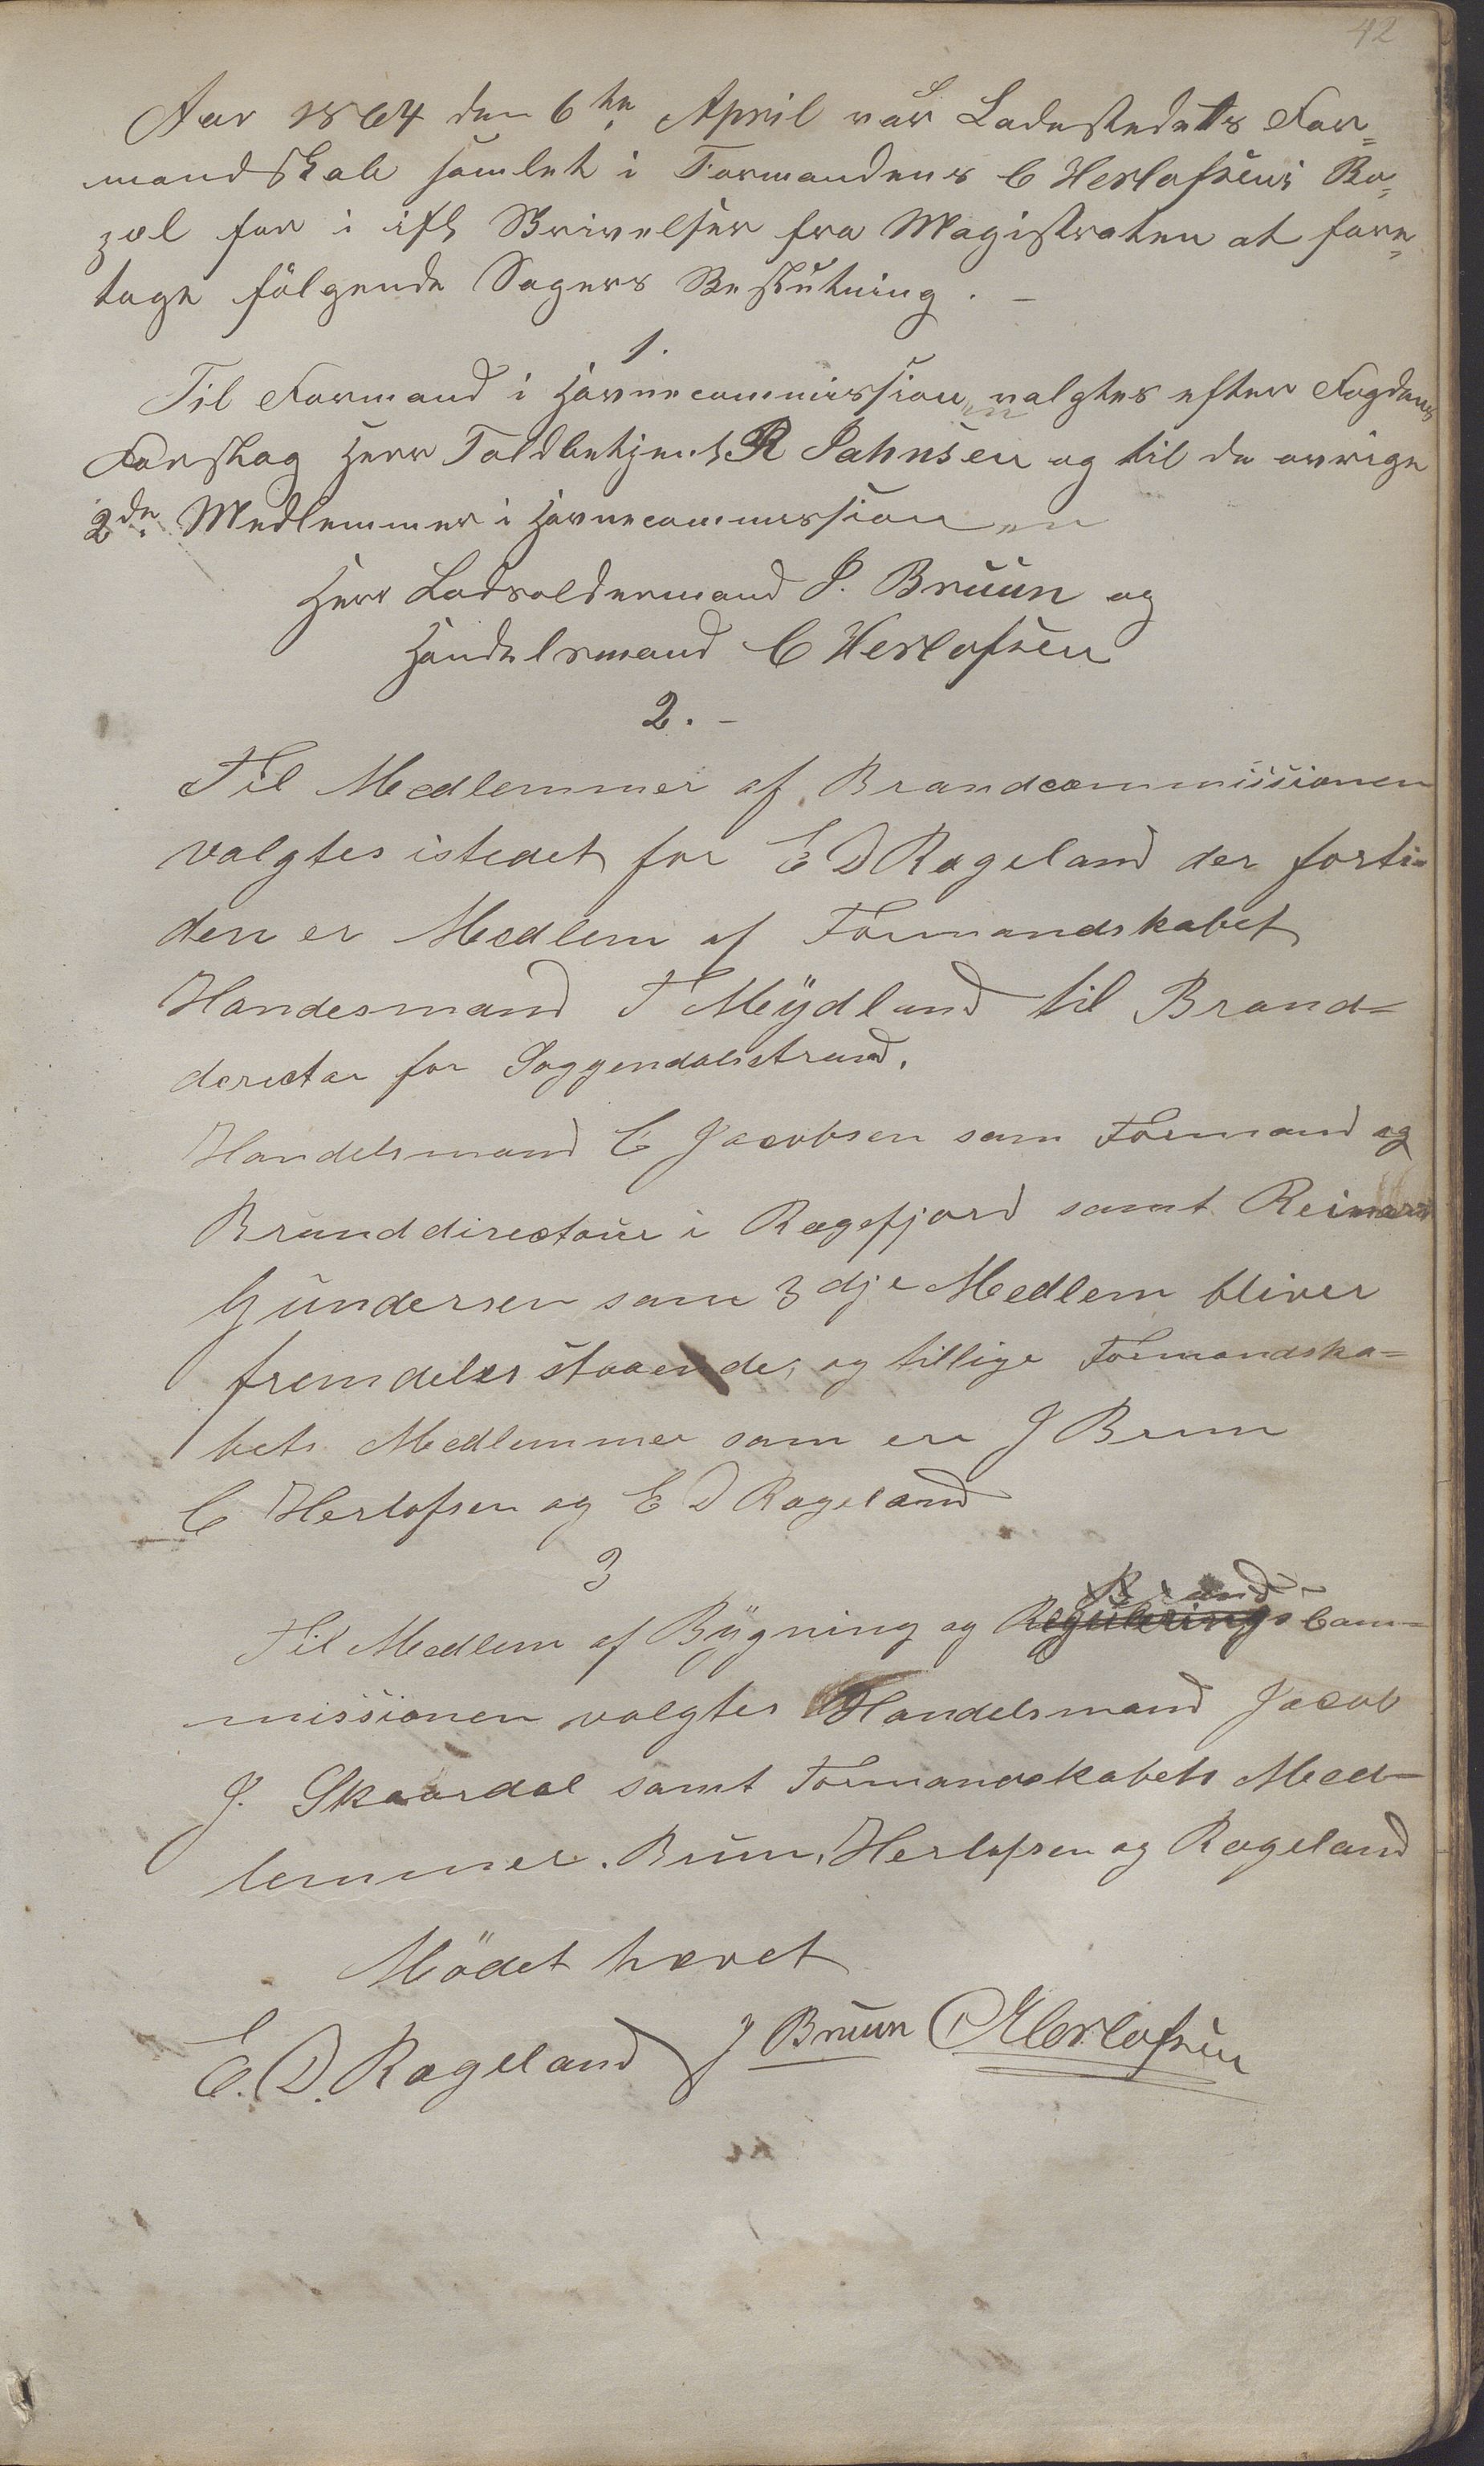 42
Aar 1864 den 6te April var Ladestedets For=
mandskab samlet i Formandens C Herlofsens Bo=
pæl for i ifl Skrivelser fra Magistraten at fore=
tage følgende Sagers Beslutning. -
1.
Til Formand i Havnecommissionen valgtes efter Fogdens
Forslag Herr Toldbetjent R Jahnsen og til de øvrige
2de Medlemmer i Havnecommissionen
Herr Lodsoldermand J. Bruun og
Handelsmand C Herlofsen
2. -
Til Medlemmer af Brandcommissionen
valgtes istedet for E D Rageland der forti=
den er Medlem af Formandskabet
Handesmand T Meÿdland til Brand=
derectør for Soggendalsstrand.
Handelsmand C Jacobsen som Formand og
Branddirectour i Ragefjord samt Reinart
Gundersen som 3dje Medlem bliver
fremdeles staaende, og tillige Formandska=
bets Medlemmer som ere J Bruun
C Herlofsen og E D Rageland
3
Til Medlem af Bÿgning og Regulerings Com=
missionen valgtes Handelsmand Jacob
J. Skaardal samt Formandskabets Med=
lemmer. Bruun, Herlofsen og Rageland
Mödet hævet
E. D. Rageland J Bruun C Herlofsen